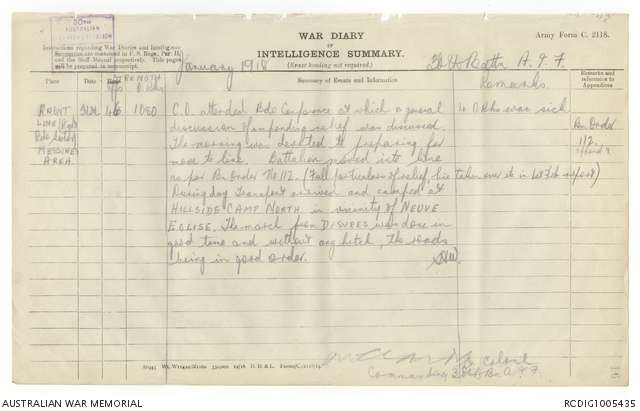 30TH
AUSTRALIAN
WAR DIARY
OF
INTELLIGENCE SUMMARY.
Army Form C. 2118.
Instructions regarding War Diaries and Intelligence
Summaries are contained in F. S. Regs., Part II.
and the Staff Manual respectively. Title pages
will be prepared in manuscript.
January 1918
(Erase heading not required.)
Battn A.I.F.
Place
Date
STRENGTH
O/Rks
Summary of Events and Information
Remarks
Remarks and
reference to
Appendices
FRONT 31st 46 1080 C.O. attended Bde Conference at which a general 4 O.Rks evac sick
LINE discussion of impending relief was discussed. Bn Order
Bde Sector The morning was devoted to preparing for 112.
MESSINES move to line. Battalion moved into line
AREA as per Bn Order No 112. (Full particulars of relief, line taken over etc in 1st Feb report)
During day Transport arrived and camped at
HILLSIDE CAMP NORTH in vicinity of NEUVE
EGLISE. The march from DESVRES was done in
good time and without any hitch, the roads
being in good order.
Lt Colonel
Commanding 30th Bn A.I.F.
AUSTRALIAN WAR MEMORIAL
RCDIG1005435